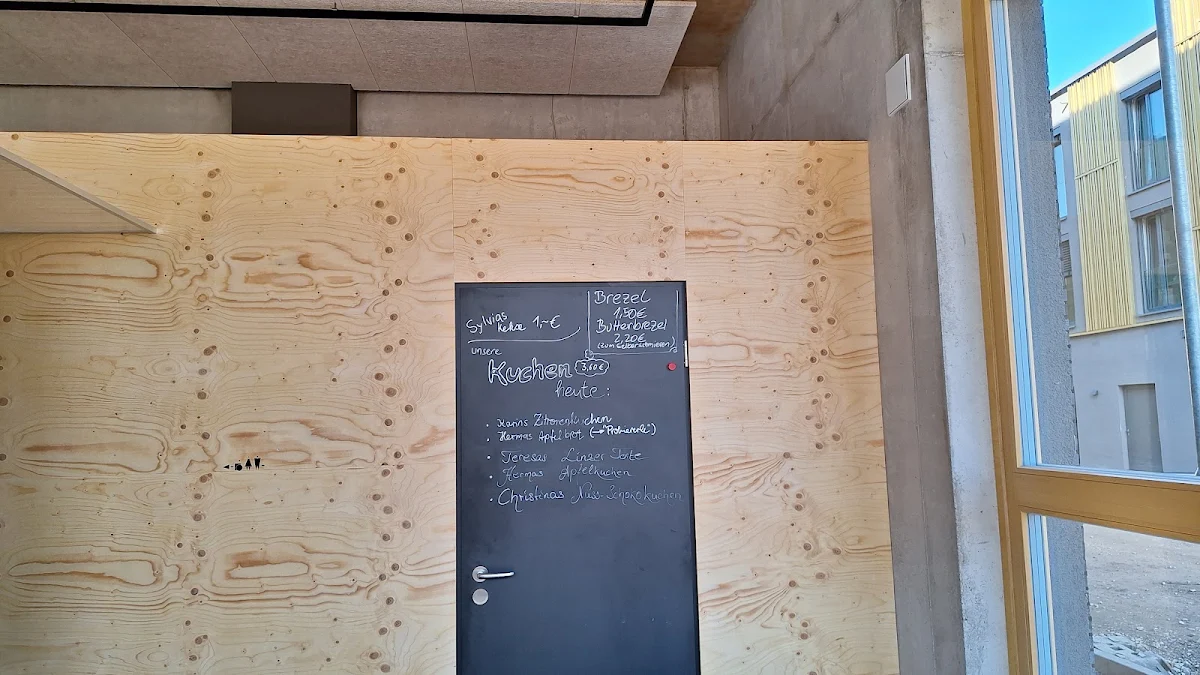 Sylvias
Kekse 1,-€
Brezel
1,50€
Butterbrezel
2,20€
(zum selberschmieren)
unsere
Kuchen 3,60€
heute:
• Karins Zitronenkuchen
• Hermas Apfelbrot (→"Probiererle")
• Teresas Linzer Torte
• Hermas Apfelkuchen
• Christinas Nuss-Schokokuchen